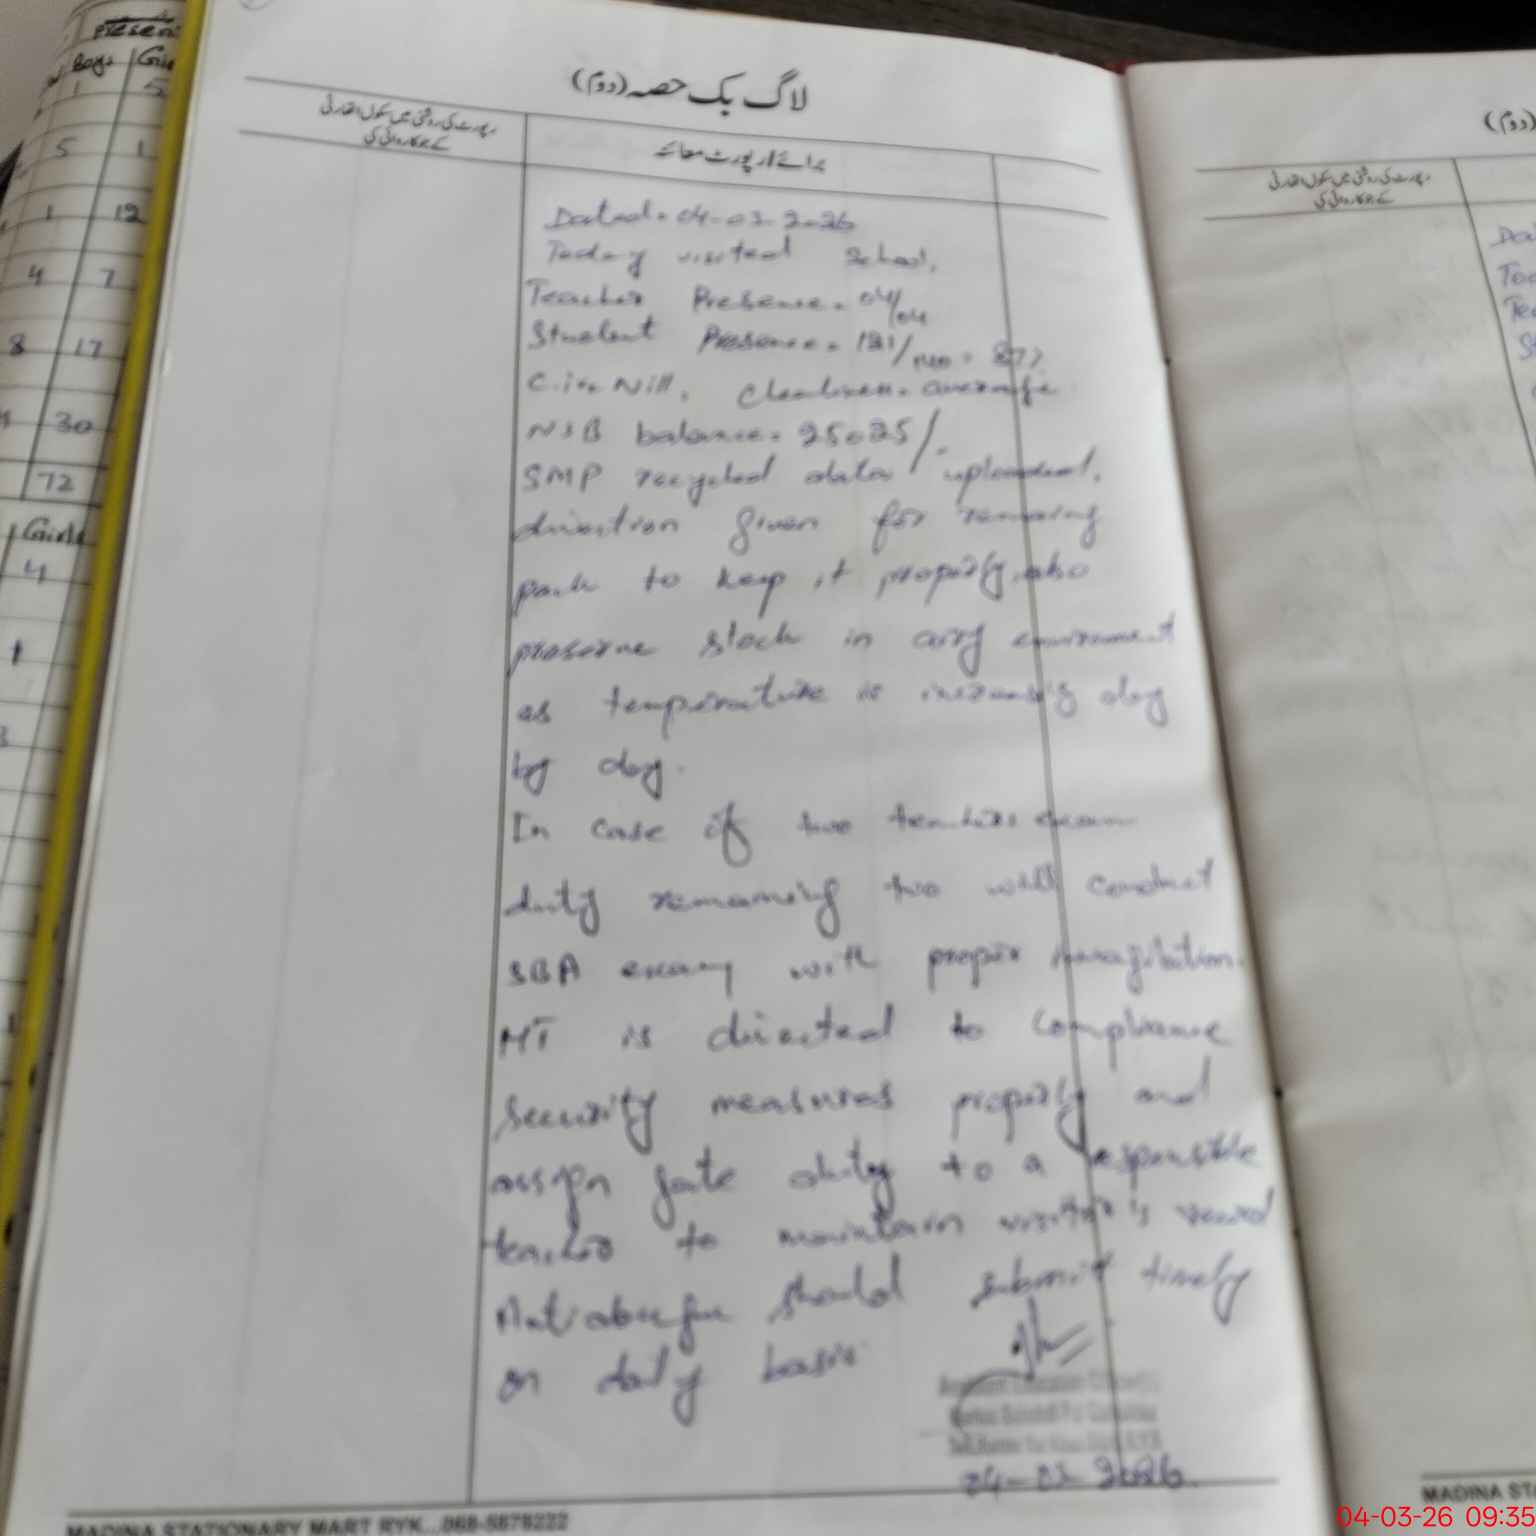 Present
Boys Girls
1 5
5 1
1 12
4 7
8 17
30
72
Girls
4
1
لاگ بک حصہ (دوم)
رپورٹ کی روشنی میں سکول اتھارٹی
کے جو کاروائی کی
برائے رپورٹ معائنہ
Dated. 04-03-2026
Today visited School.
Teacher Presence. 04/04
Student Presence. 121/140 = 87%
Nill, Cleanliness. average
NSB balance. 25025/-
SMP recycled data uploaded.
direction given for remaining
pack to keep it properly, also
preserve stock in airy enviroment
as temperature is increasing day
by day.
In case if two teachers exam
duty remaining two will conduct
SBA exam with proper invagilation.
HT is directed to compliance
security measures properly and
assign gate duty to a responsible
teacher to maintain visitor's record
should submit timely
on daily basis
04-03-2026
MADINA STATIONARY MART RYK...068-5878222
(دوم)
رپورٹ کی روشنی میں سکول اتھارٹی
کے جو کاروائی کی
MADINA STA
04-03-26 09:35